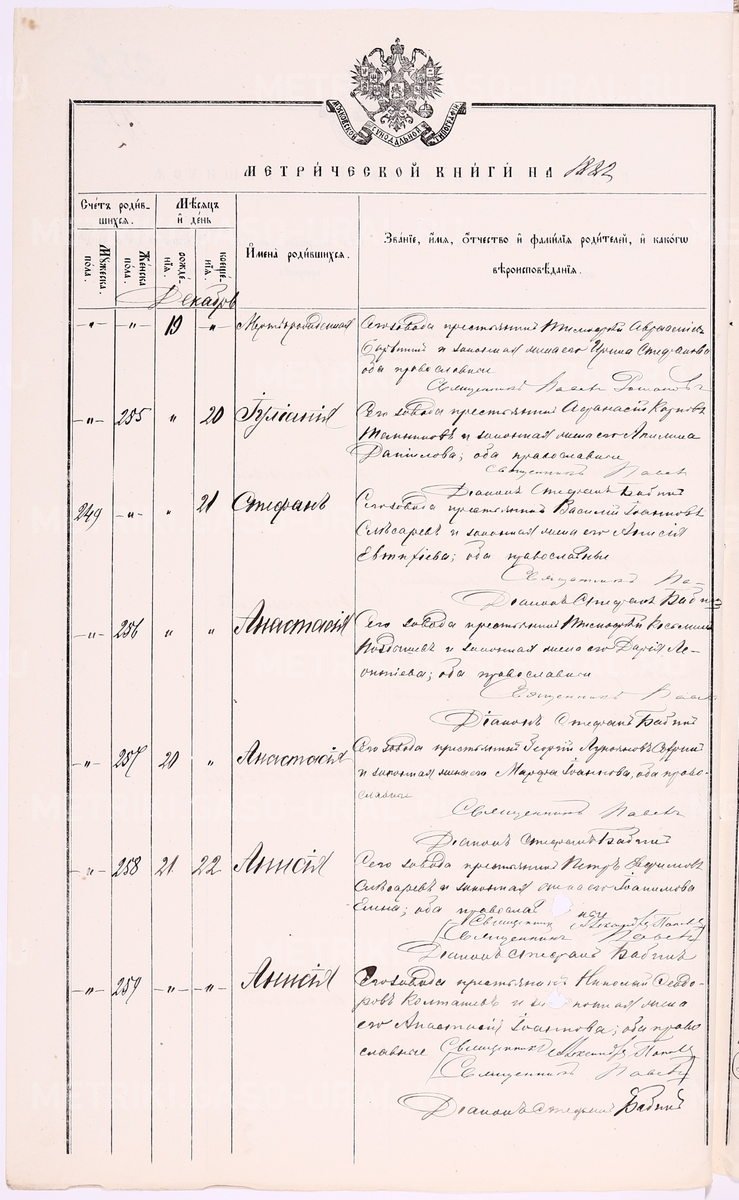 МОСКОВСКОЙ СѴНОДАЛЬНОЙ ТИПОГРАФІИ
МЕТРИ́ЧЕСКОЙ КНИ́ГИ НА 1882
Сче́тъ роди́в-
шихся.
Мѣ́сяцъ
и҆ де́нь
Мꙋ́жеска по́ла.
Же́нска по́ла.
рожде́нїя.
креще́нїя.
И҆мена̀ роди́вшихся.
Зва́нїе, и҆́мя, ѻ҆́тчество и҆ фами́лїя роди́телей, и҆ како́гѡ
вѣроисповѣ́данїя.
Декабрь
-"- -"- 19 " Мертворожденная Сего завода крестьянинъ Тимофей
и законная жена его Ирина Стефанова
оба православные
Священникъ Павелъ
-"- 255 " 20 Іуліанія Сего завода крестьянинъ Афанасій Карповъ
и законная жена его Акилина
Данилова; оба православные
Священникъ Павелъ
Діаконъ Стефанъ Бабинъ
249 -"- " 21 Стефанъ Сего завода крестьянинъ Василій Іоанновъ
Слѣсаревъ и законная жена его Анисія
Евтихіева; оба православные
Священникъ Па-
Діаконъ Стефанъ Бабинъ
-"- 256 " " Анастасія Сего завода крестьянинъ Тимофей Косьминъ
и законная жена его Дарія Ле-
онтіева; оба православные
Священникъ Павелъ
Діаконъ Стефанъ Бабинъ
-"- 257 20 " Анастасія Сего завода крестьянинъ Георгій
и законная жена его Марфа Іоаннова, оба право-
славные
Священникъ Павелъ
Діаконъ Стефанъ Бабинъ
-"- 258 21 22 Анисія Сего завода крестьянинъ Петръ Ефимовъ
Слѣсаревъ и законная жена его Іоакимова
Елена; оба православ
Священникъ Александръ Поповъ
Священникъ Павелъ
Діаконъ Стефанъ Бабинъ
-"- 259 -"- -"- Анисія Сего завода крестьянинъ Николай Ѳеодо-
ровъ Колташевъ и законная жена
его Анастасія Іоаннова; оба право
славные Священникъ Александръ Поповъ
Священникъ Павелъ
Діаконъ Стефанъ Бабинъ